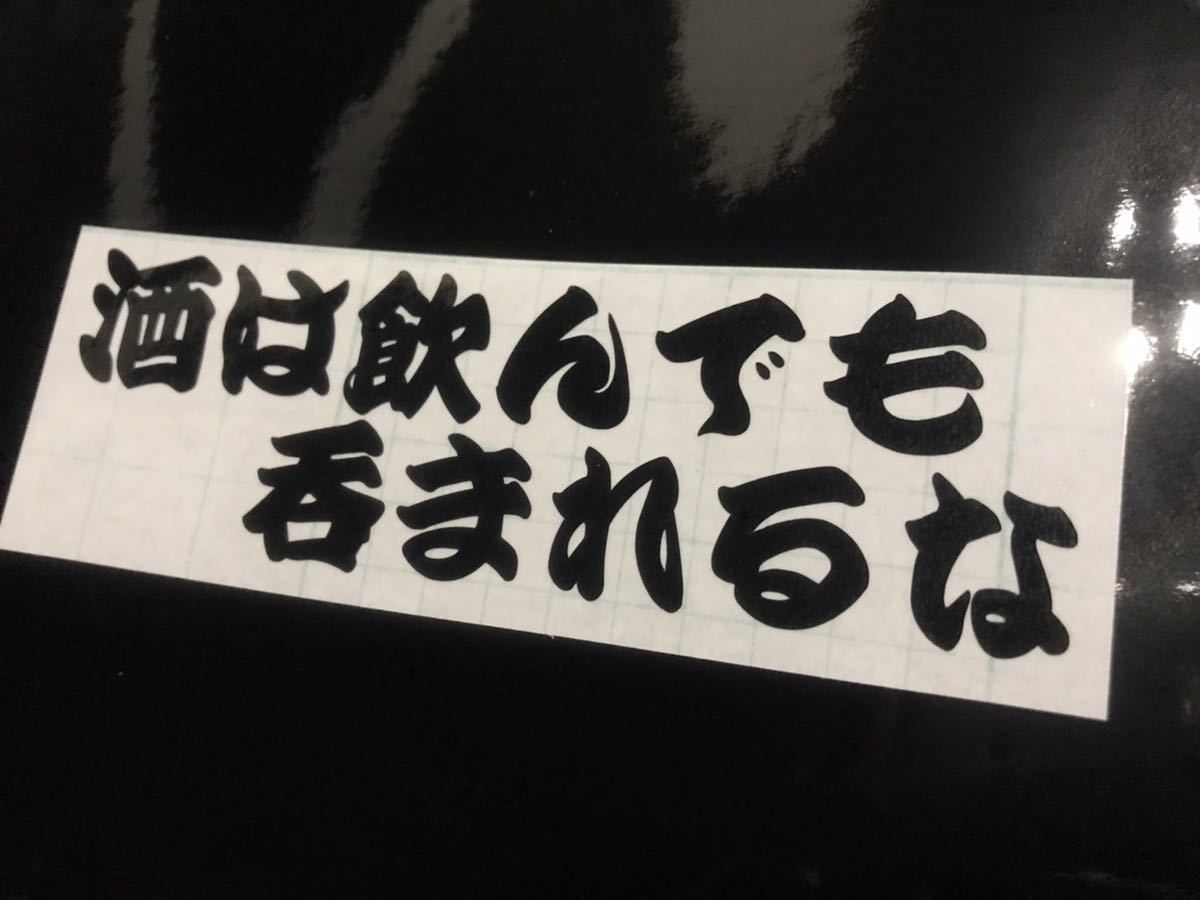 酒は飲んでも
呑まれるな